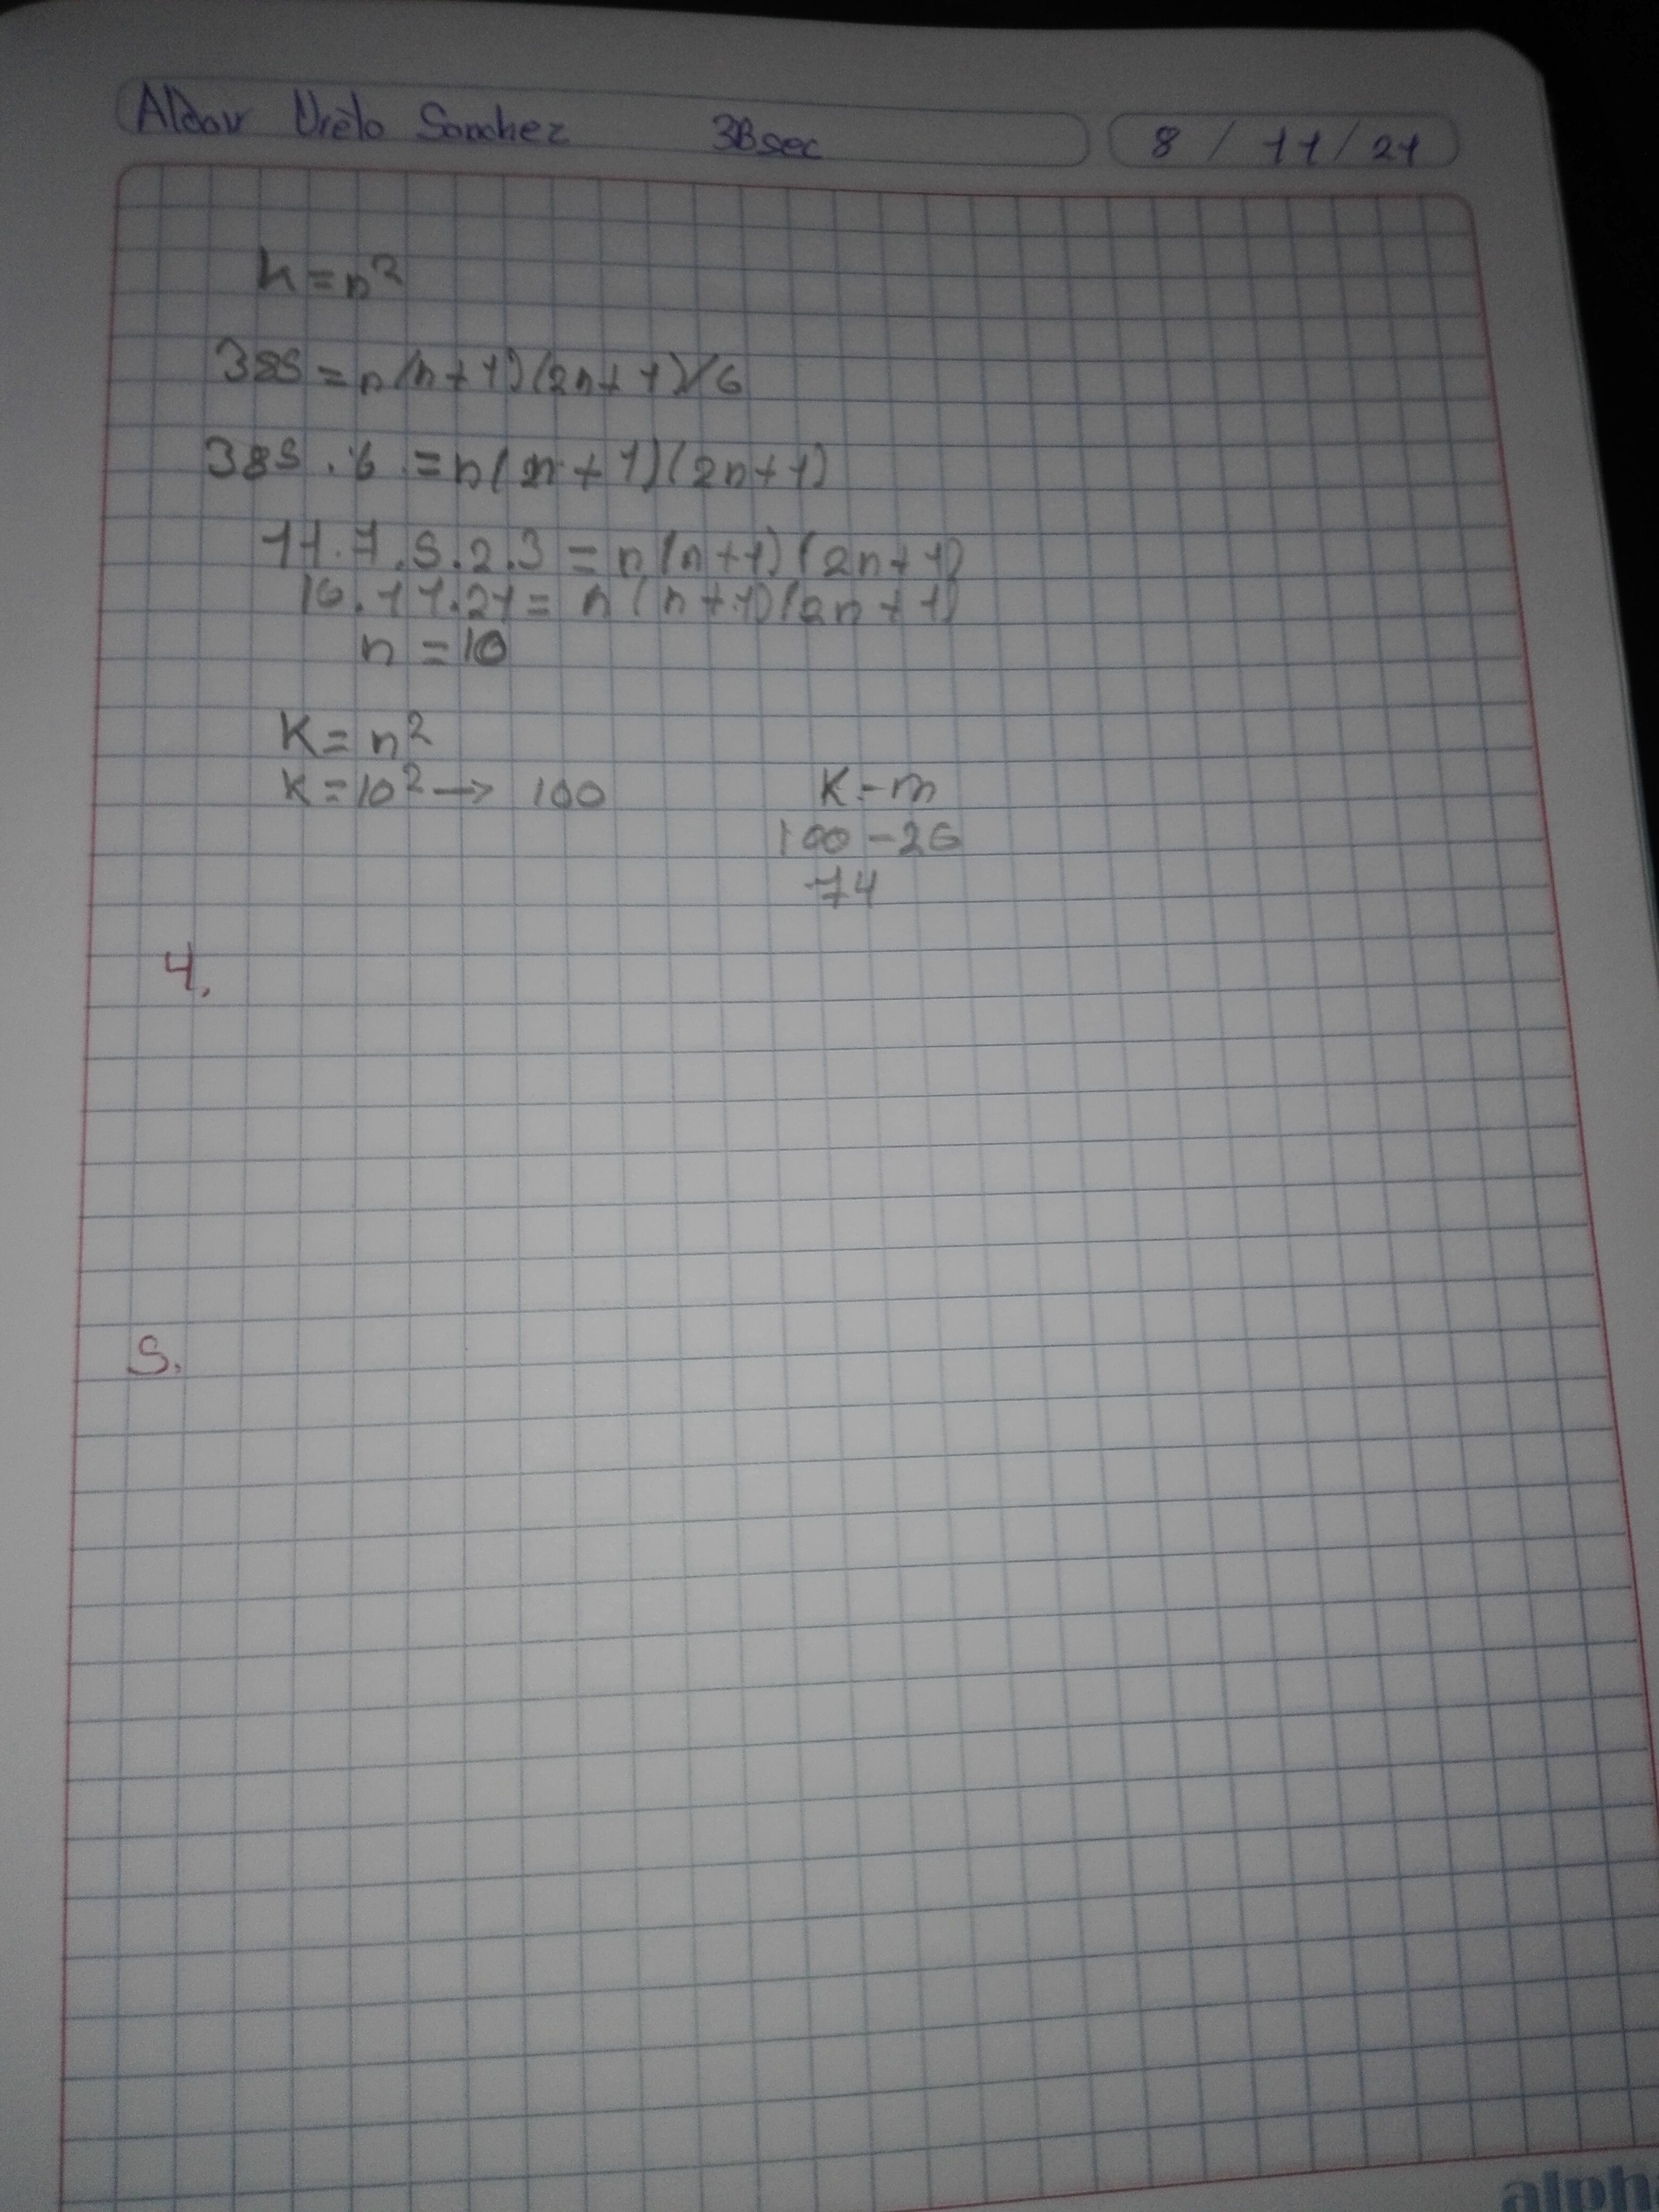 Aldair Urelo Sanchez 3Bsec 8 / 11 / 21
k = n²
385 = n(n+1)(2n+1)/6
385 . 6 = n(n+1)(2n+1)
11.7.5.2.3 = n(n+1)(2n+1)
10.11.21 = n(n+1)(2n+1)
n = 10
K = n²
K = 10² → 100
K - m
100 - 26
74
4.
5.
alph